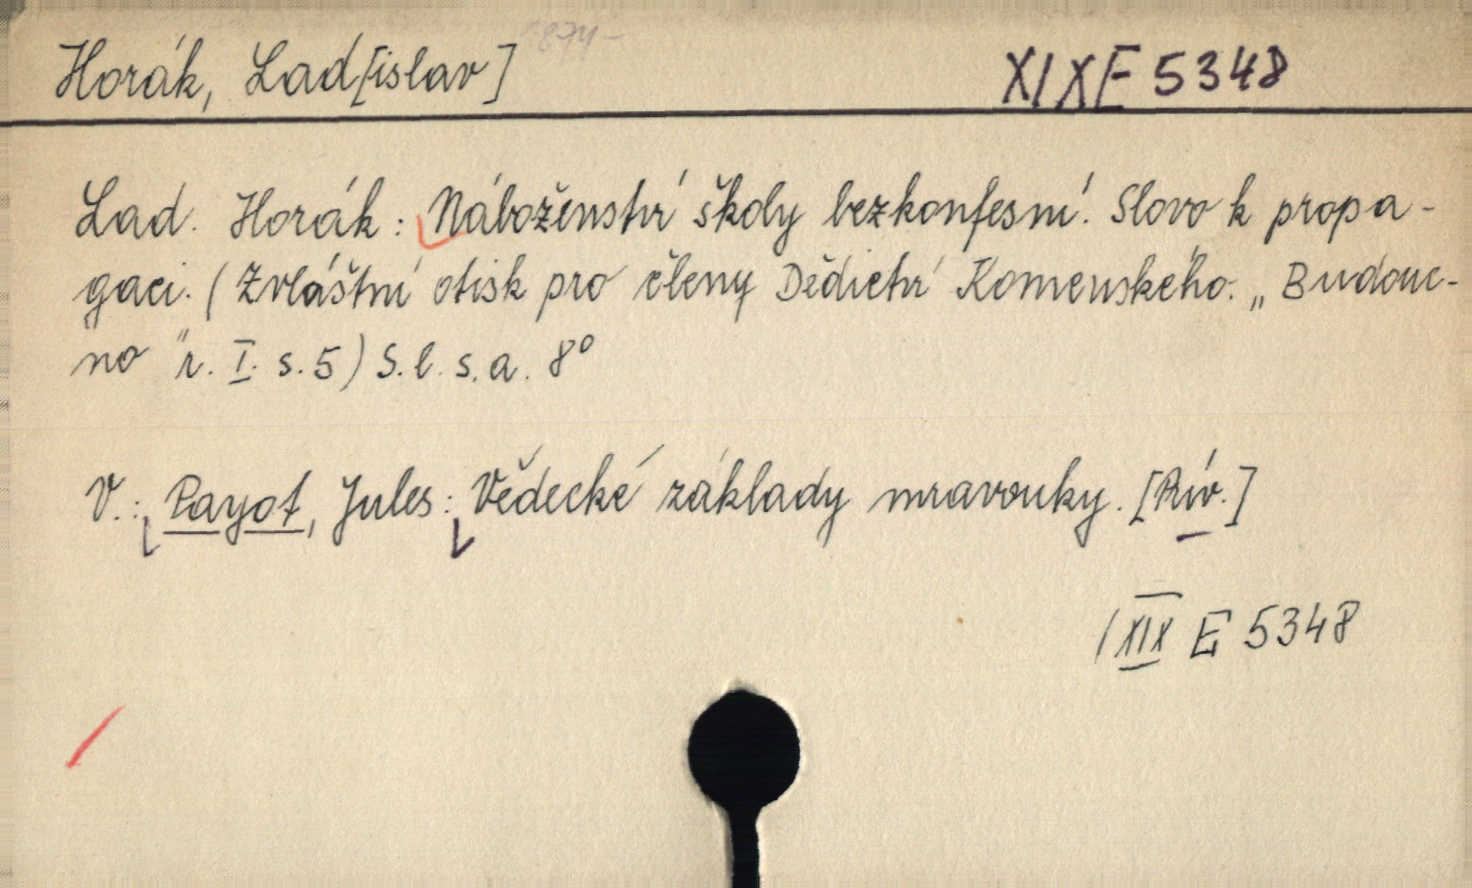 Horák, Lad[islav] 1874-
XIX E 5348
Lad. Horák: Náboženství školy bezkonfesní. Slovo k propa-
gaci. (Zvláštní otisk pro členy Dědictví Komenského. „Budouc-
no" r. I. s. 5) S. l. s. a. 8°
V.: Payot, Jules: Vědecké základy mravouky. [Přív.]
XIX E 5348